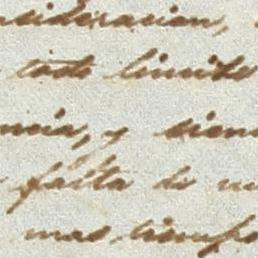 nsideracion,
todo limite
ncia, y siem
falta de m
mas tiempo